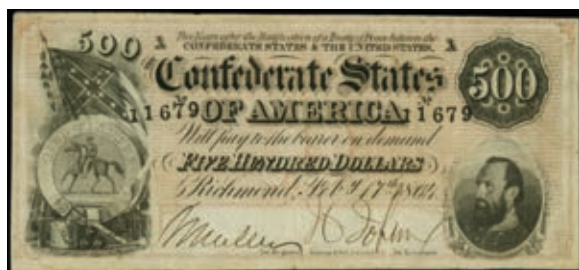 500 A Two Years after the Ratification of a Treaty of Peace between the A
CONFEDERATE STATES & THE UNITED STATES,
Confederate States 500
No 11679 OF AMERICA No 11679
Will pay to the bearer on demand
FIVE HUNDRED DOLLARS
Richmond, Feb'y 17th 1864.